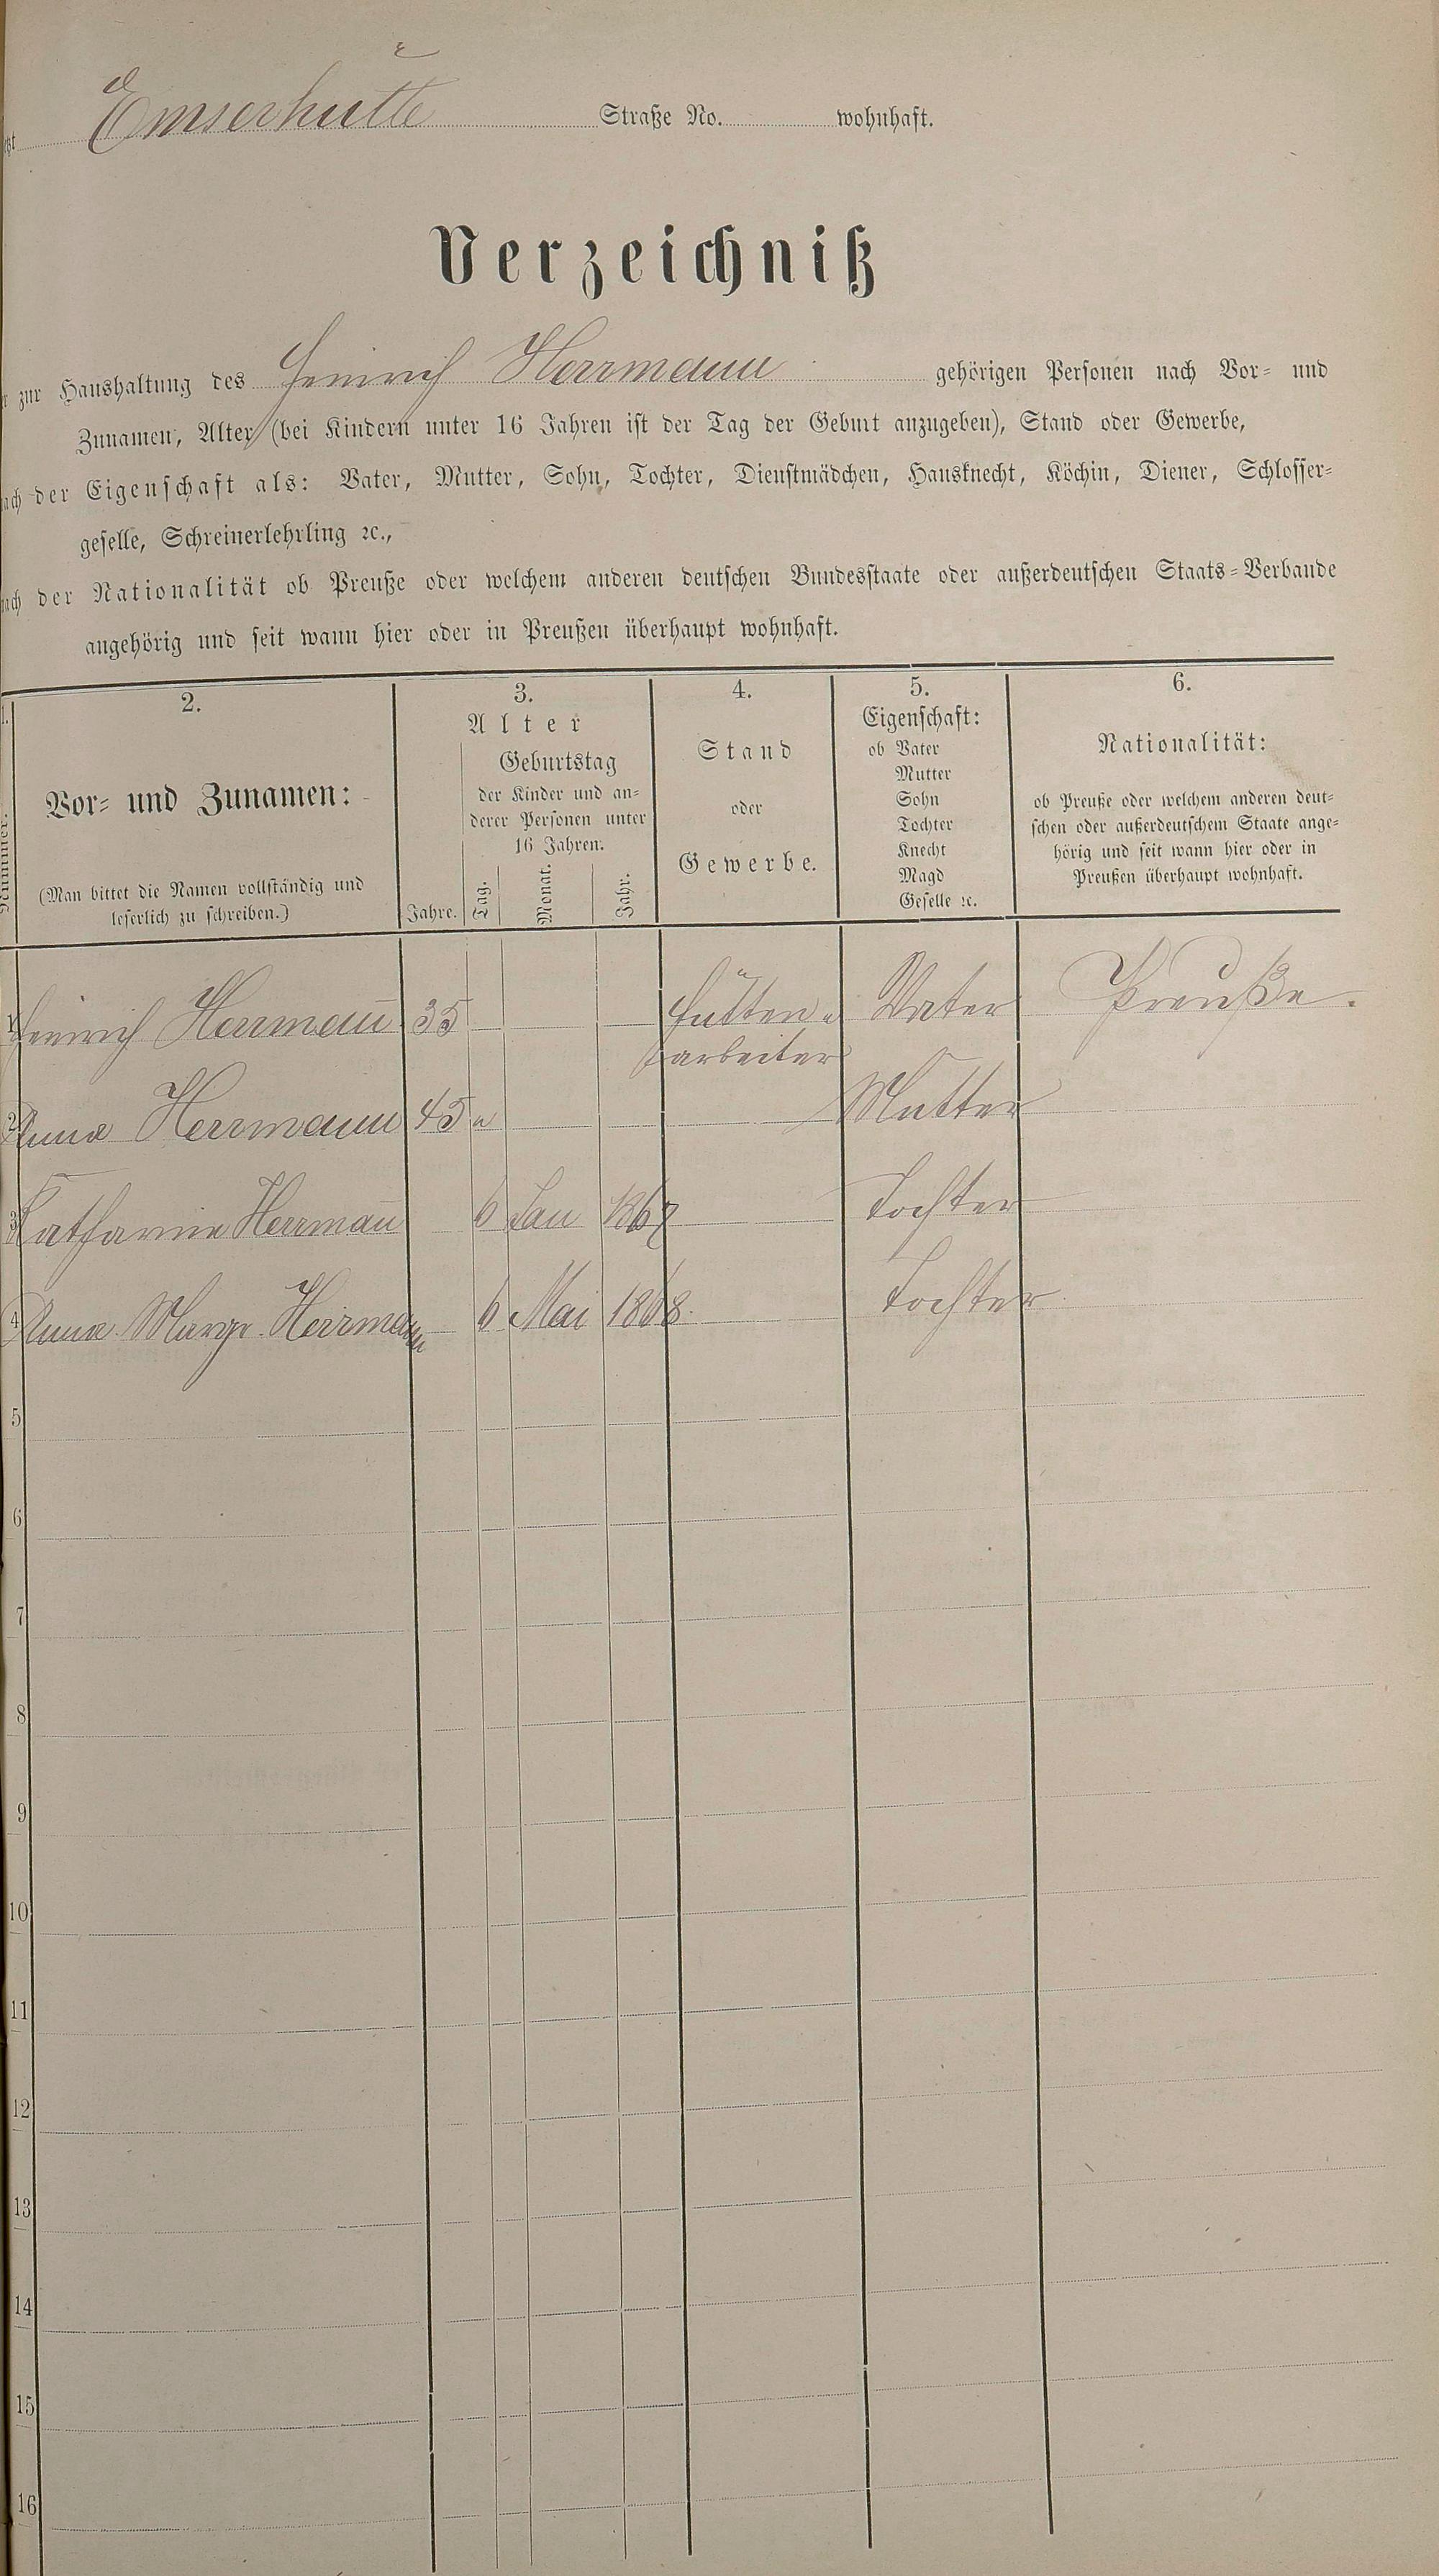 Emserhütte Straße No. wohnhaft.
Verzeichniß
zur Haushaltung des Heinrich Herrmann gehörigen Personen nach Vor- und
Zunamen, Alter (bei Kindern unter 16 Jahren ist der Tag der Geburt anzugeben), Stand oder Gewerbe,
der Eigenschaft als: Vater, Mutter, Sohn, Tochter, Dienstmädchen, Hausknecht, Köchin, Diener, Schlosser-
geselle, Schreinerlehrling ꝛc.,
der Nationalität ob Preuße oder welchem anderen deutschen Bundesstaate oder außerdeutschen Staats-Verbande
angehörig und seit wann hier oder in Preußen überhaupt wohnhaft.
1.
Nummer.
2.
Vor- und Zunamen:
(Man bittet die Namen vollständig und
leserlich zu schreiben.)
3.
Alter
Jahre.
Geburtstag
der Kinder und an-
derer Personen unter
16 Jahren.
Tag. Monat. Jahr.
4.
Stand
oder
Gewerbe.
5.
Eigenschaft:
ob Vater
Mutter
Sohn
Tochter
Knecht
Magd
Geselle ꝛc.
6.
Nationalität:
ob Preuße oder welchem anderen deut-
schen oder außerdeutschem Staate ange-
hörig und seit wann hier oder in
Preußen überhaupt wohnhaft.
1 Heinrich Herrmañ 35 Hütten Vater Preuße.
arbeiter
2 Anna Herrmann 45 Mutter
3 Katharine Herrmañ 6 Jan 1867 Tochter
4 Anna Margr. Herrmann 6 Mai 1868. Tochter
5
6
7
8
9
10
11
12
13
14
15
16